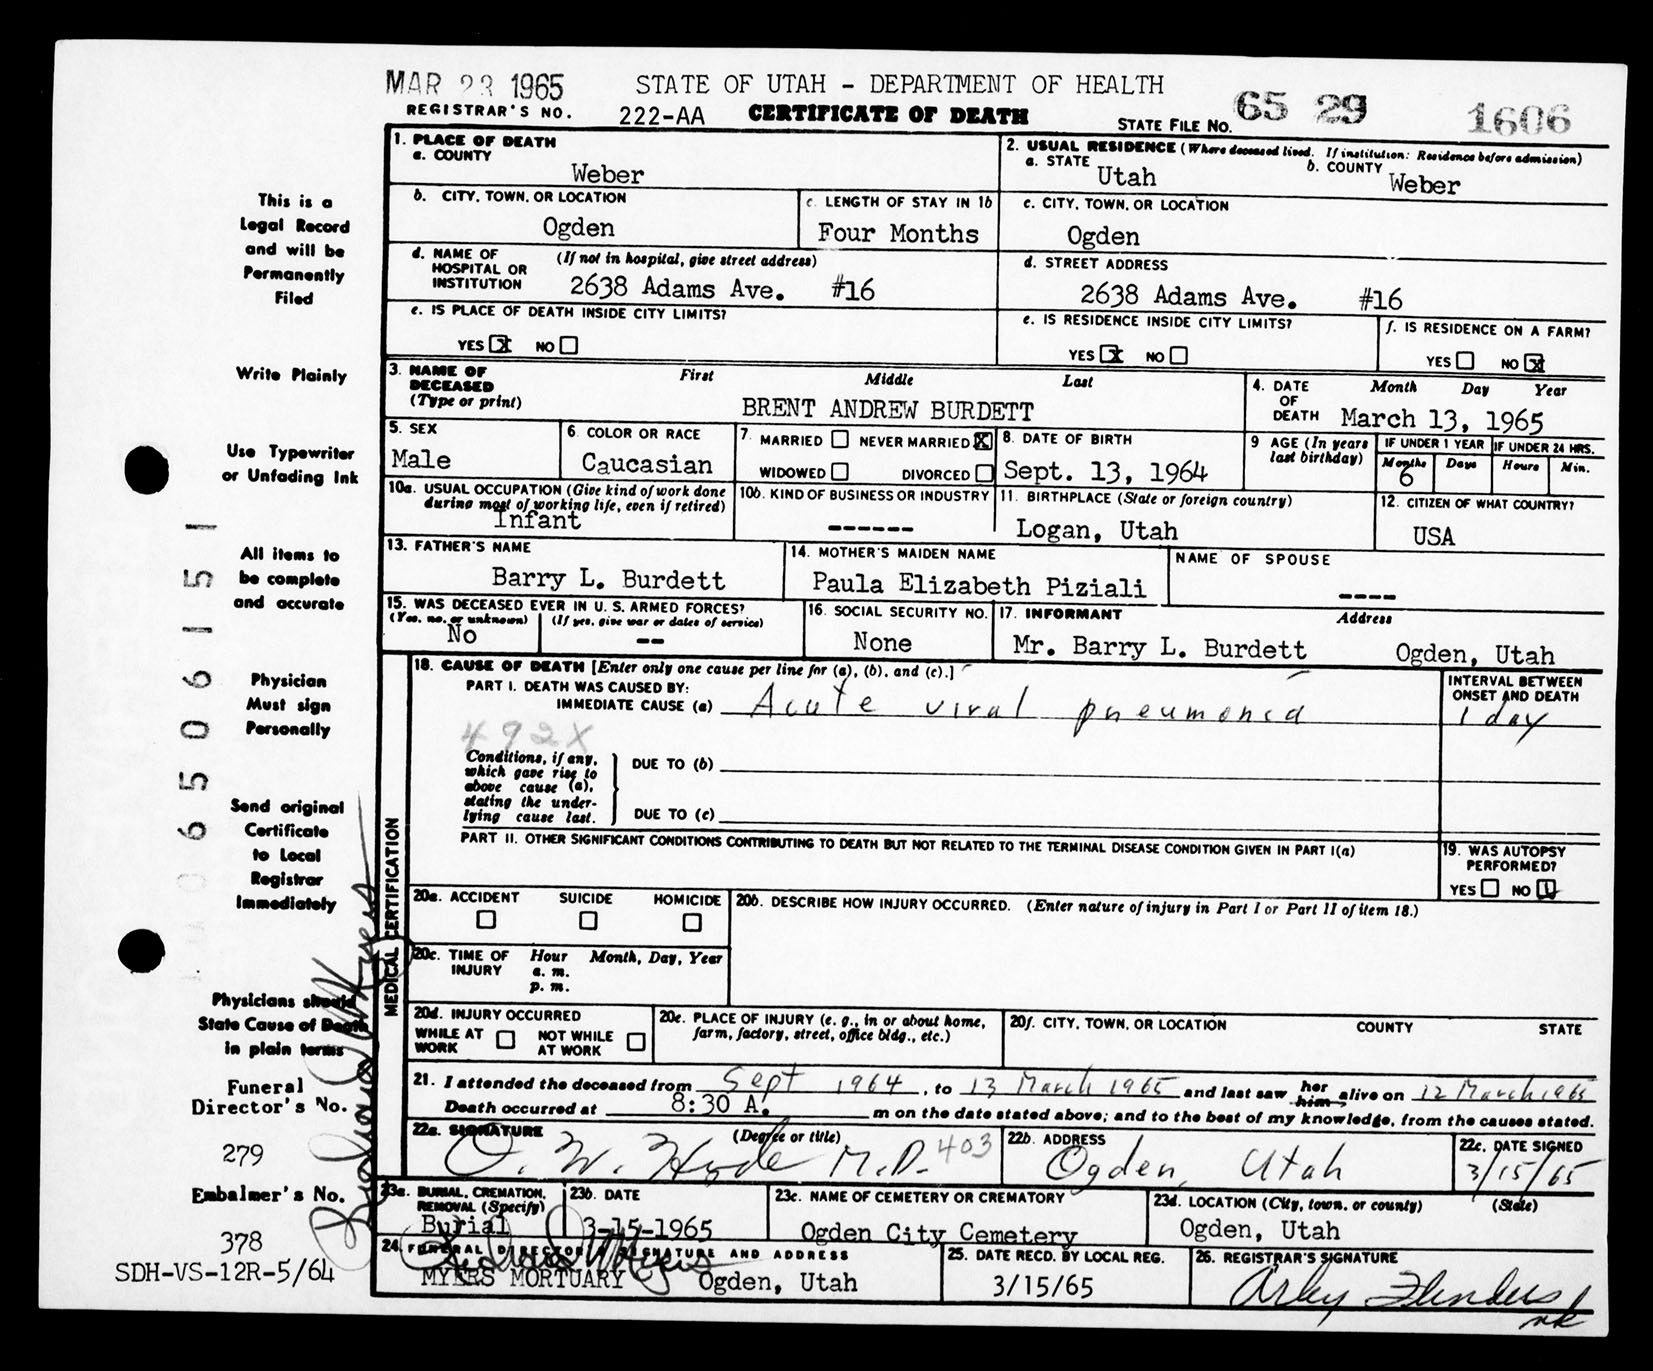 MAR 23 1965 STATE OF UTAH - DEPARTMENT OF HEALTH
REGISTRAR'S NO. 222-AA CERTIFICATE OF DEATH STATE FILE NO. 65 29 1606
This is a
Legal Record
and will be
Permanently
Filed
Write Plainly
Use Typewriter
or Unfading Ink
All items to
be complete
and accurate
Physician
Must sign
Personally
Send original
Certificate
to Local
Registrar
Immediately
Physicians should
State Cause of Death
in plain terms
Funeral
Director's No.
279
Embalmer's No.
378
SDH-VS-12R-5/64
1. PLACE OF DEATH
a. COUNTY
Weber
2. USUAL RESIDENCE (Where deceased lived. If institution: Residence before admission)
a. STATE Utah b. COUNTY Weber
b. CITY, TOWN, OR LOCATION
Ogden
c. LENGTH OF STAY IN 1b
Four Months
c. CITY, TOWN, OR LOCATION
Ogden
d. NAME OF HOSPITAL OR INSTITUTION (If not in hospital, give street address)
2638 Adams Ave. #16
d. STREET ADDRESS
2638 Adams Ave. #16
e. IS PLACE OF DEATH INSIDE CITY LIMITS?
YES X NO
e. IS RESIDENCE INSIDE CITY LIMITS?
YES X NO
f. IS RESIDENCE ON A FARM?
YES NO X
3. NAME OF DECEASED (Type or print) First Middle Last
BRENT ANDREW BURDETT
4. DATE OF DEATH Month Day Year
March 13, 1965
5. SEX
Male
6. COLOR OR RACE
Caucasian
7. MARRIED NEVER MARRIED X
WIDOWED DIVORCED
8. DATE OF BIRTH
Sept. 13, 1964
9 AGE (In years last birthday)
IF UNDER 1 YEAR IF UNDER 24 HRS.
Months Days Hours Min.
6
10a. USUAL OCCUPATION (Give kind of work done during most of working life, even if retired)
Infant
10b. KIND OF BUSINESS OR INDUSTRY
------
11. BIRTHPLACE (State or foreign country)
Logan, Utah
12. CITIZEN OF WHAT COUNTRY?
USA
13. FATHER'S NAME
Barry L. Burdett
14. MOTHER'S MAIDEN NAME
Paula Elizabeth Piziali
NAME OF SPOUSE
----
15. WAS DECEASED EVER IN U. S. ARMED FORCES?
(Yes, no, or unknown) (If yes, give war or dates of service)
No --
16. SOCIAL SECURITY NO.
None
17. INFORMANT Address
Mr. Barry L. Burdett Ogden, Utah
MEDICAL CERTIFICATION
18. CAUSE OF DEATH [Enter only one cause per line for (a), (b), and (c).]
PART I. DEATH WAS CAUSED BY:
IMMEDIATE CAUSE (a) Acute viral pneumonia
INTERVAL BETWEEN ONSET AND DEATH
1 day
492X
Conditions, if any, which gave rise to above cause (a), stating the underlying cause last.
DUE TO (b)
DUE TO (c)
PART II. OTHER SIGNIFICANT CONDITIONS CONTRIBUTING TO DEATH BUT NOT RELATED TO THE TERMINAL DISEASE CONDITION GIVEN IN PART I(a)
19. WAS AUTOPSY PERFORMED?
YES NO
20a. ACCIDENT SUICIDE HOMICIDE
20b. DESCRIBE HOW INJURY OCCURRED. (Enter nature of injury in Part I or Part II of item 18.)
20c. TIME OF INJURY Hour Month, Day, Year
a. m.
p. m.
20d. INJURY OCCURRED
WHILE AT WORK NOT WHILE AT WORK
20e. PLACE OF INJURY (e. g., in or about home, farm, factory, street, office bldg., etc.)
20f. CITY, TOWN, OR LOCATION COUNTY STATE
21. I attended the deceased from Sept 1964, to 13 March 1965 and last saw her him alive on 12 March 1965
Death occurred at 8:30 A. m on the date stated above; and to the best of my knowledge, from the causes stated.
22a. SIGNATURE (Degree or title)
O. W. Hyde M.D. 403
22b. ADDRESS
Ogden, Utah
22c. DATE SIGNED
3/15/65
23a. BURIAL, CREMATION, REMOVAL (Specify)
Burial
23b. DATE
3-15-1965
23c. NAME OF CEMETERY OR CREMATORY
Ogden City Cemetery
23d. LOCATION (City, town, or county) (State)
Ogden, Utah
24. FUNERAL DIRECTOR'S SIGNATURE AND ADDRESS
MYERS MORTUARY Ogden, Utah
25. DATE RECD. BY LOCAL REG.
3/15/65
26. REGISTRAR'S SIGNATURE